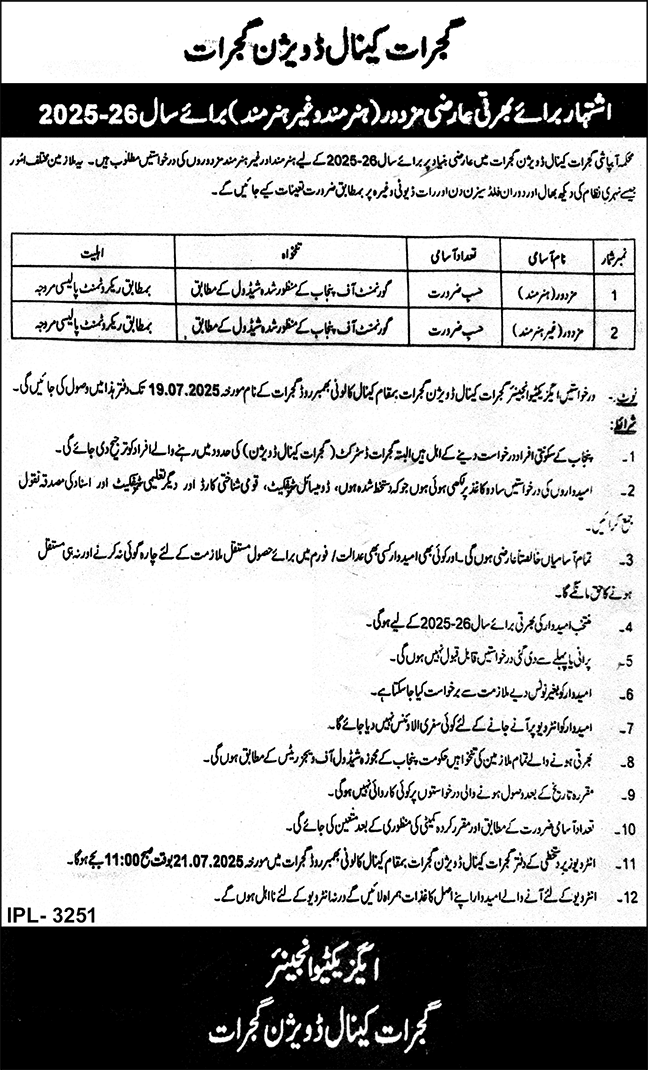 گجرات کینال ڈویژن گجرات
اشتہار برائے بھرتی عارضی مزدور (ہنرمند و غیر ہنرمند) برائے سال 26-2025
محکمہ آبپاشی گجرات کینال ڈویژن گجرات میں عارضی بنیاد پر برائے سال 26-2025 کے لیے ہنرمند اور غیر ہنرمند مزدوروں کی درخواستیں مطلوب ہیں۔ یہ ملازمین مختلف امور
جیسے نہری نظام کی دیکھ بھال اور دوران فلڈ سیزن دن اور رات ڈیوٹی وغیرہ پر بمطابق ضرورت تعینات کیے جائیں گے۔
نمبر شمار نام آسامی تعداد آسامی تنخواہ اہلیت
1 مزدور (ہنرمند) حسب ضرورت گورنمنٹ آف پنجاب کے منظور شدہ شیڈول کے مطابق بمطابق ریکروٹمنٹ پالیسی مروجہ
2 مزدور (غیر ہنرمند) حسب ضرورت گورنمنٹ آف پنجاب کے منظور شدہ شیڈول کے مطابق بمطابق ریکروٹمنٹ پالیسی مروجہ
نوٹ:۔ درخواستیں ایگزیکٹیو انجینئر گجرات کینال ڈویژن گجرات بمقام کینال کالونی بھمبر روڈ گجرات کے نام مورخہ 19.07.2025 تک دفتر ہذا میں وصول کی جائیں گی۔
شرائط:
1۔ پنجاب کے سکونتی افراد درخواست دینے کے اہل ہیں البتہ گجرات ڈسٹرکٹ (گجرات کینال ڈویژن) کی حدود میں رہنے والے افراد کو ترجیح دی جائے گی۔
2۔ امیدواروں کی درخواستیں سادہ کاغذ پر لکھی ہوئی ہوں جو کہ دستخط شدہ ہوں، ڈومیسائل سرٹیفکیٹ، قومی شناختی کارڈ اور دیگر تعلیمی سرٹیفکیٹ اور اسناد کی مصدقہ نقول
جمع کرائیں۔
3۔ تمام آسامیاں خالصتاً عارضی ہوں گی۔ اور کوئی بھی امیدوار کسی بھی عدالت / فورم میں برائے حصول مستقل ملازمت کے لئے چارہ گوئی نہ کرے اور نہ ہی مستقل
ہونے کا حق مانگے گا۔
4۔ منتخب امیدوار کی بھرتی برائے سال 26-2025 کے لیے ہوگی۔
5۔ پرانی یا پہلے سے دی گئی درخواستیں قابل قبول نہیں ہوں گی۔
6۔ امیدوار کو بغیر نوٹس دیے ملازمت سے برخواست کیا جاسکتا ہے۔
7۔ امیدوار کو انٹرویو پر آنے جانے کے لئے کوئی سفری الاؤنس نہیں دیا جائے گا۔
8۔ بھرتی ہونے والے تمام ملازمین کی تنخواہیں حکومت پنجاب کے مجوزہ شیڈول آف ویجز ریٹس کے مطابق ہوں گی۔
9۔ مقررہ تاریخ کے بعد وصول ہونے والی درخواستوں پر کوئی کاروائی نہیں ہوگی۔
10۔ تعداد آسامی ضرورت کے مطابق اور مقرر کردہ کمیٹی کی منظوری کے بعد متعین کی جائے گی۔
11۔ انٹرویو زیر دستخطی کے دفتر گجرات کینال ڈویژن گجرات بمقام کینال کالونی بھمبر روڈ گجرات میں مورخہ 21.07.2025 بوقت صبح 11:00 بجے ہوگا۔
12۔ انٹرویو کے لئے آنے والے امیدوار اپنے اصل کاغذات ہمراہ لائیں گے ورنہ انٹرویو کے لئے نااہل ہوں گے۔
IPL- 3251
ایگزیکٹیو انجینئر
گجرات کینال ڈویژن گجرات